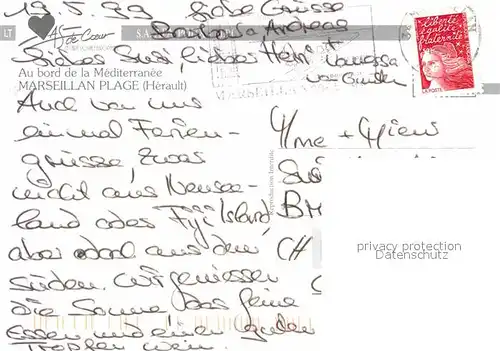 19.5.99 Liebe Grüsse
Barbara, Andreas
Vanessa
von Gunten
LT
AS de Coeur
S.A.
Liebes Susi lieber Heinz
Au bord de la Méditerranée
MARSEILLAN PLAGE (Hérault)
MARSEILLAN
Liberté
égalité
fraternité
LA POSTE
Auch von uns
einmal Ferien-
grüsse, zwar
nicht aus Neusee-
land oder Fyji Island,
aber doch aus dem
Süden. Wir geniessen
die Sonne das feine
Essen und einen guten
Tropfen Wein.
Reproduction Interdite
Mme + Msieu
Sus
BM
CH
privacy protection
Datenschutz